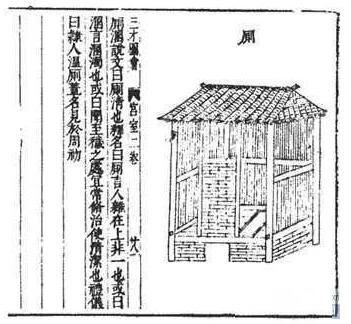 厠
三才圖會 宮室二卷 廿八
厠溷說文曰厠清也釋名曰厠言人雜在上非一也或曰
溷言溷濁也或曰圊至穢之處宜常脩治使清潔也禮儀
曰隸人湼厠葢名見於周初